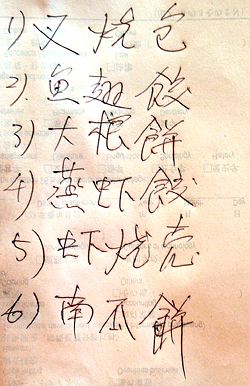 1) 叉烧包
2) 魚翅餃
3) 大根餅
4) 蒸虾餃
5) 虾烧売
6) 南瓜餅